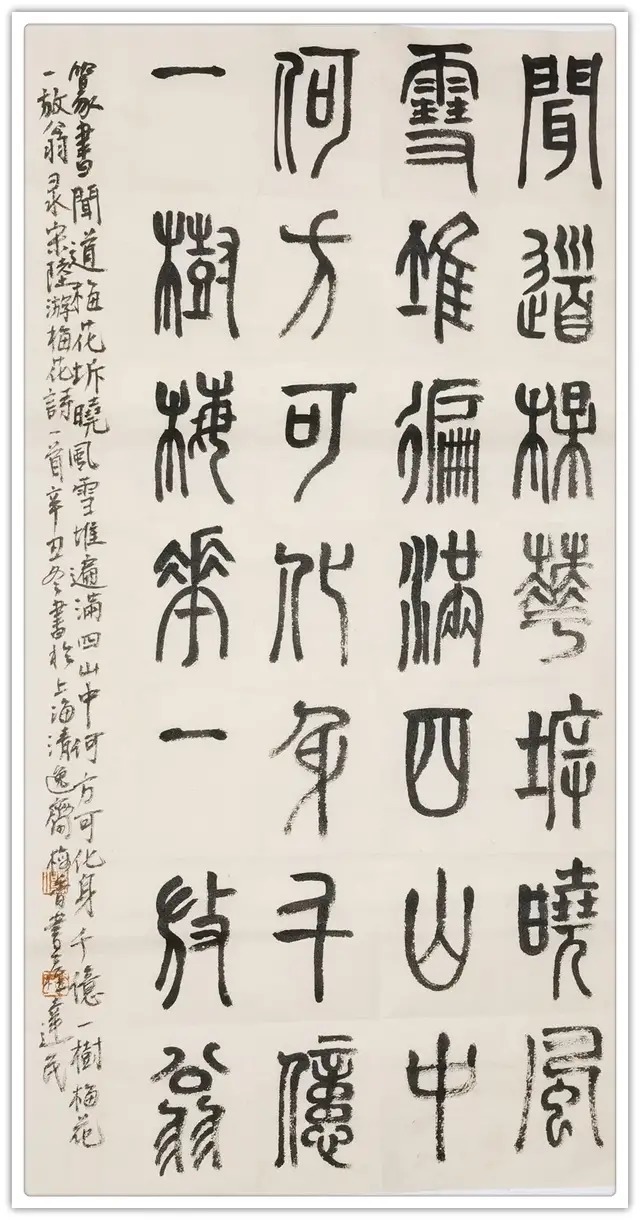 聞道梅華坼曉風
雪堆徧滿四山中
何方可化身千億
一樹梅華一放翁
篆書聞道梅花坼曉風雪堆遍滿四山中何方可化身千億一樹梅花
一放翁录宋陸游梅花詩一首辛丑冬書於上海清逸齋